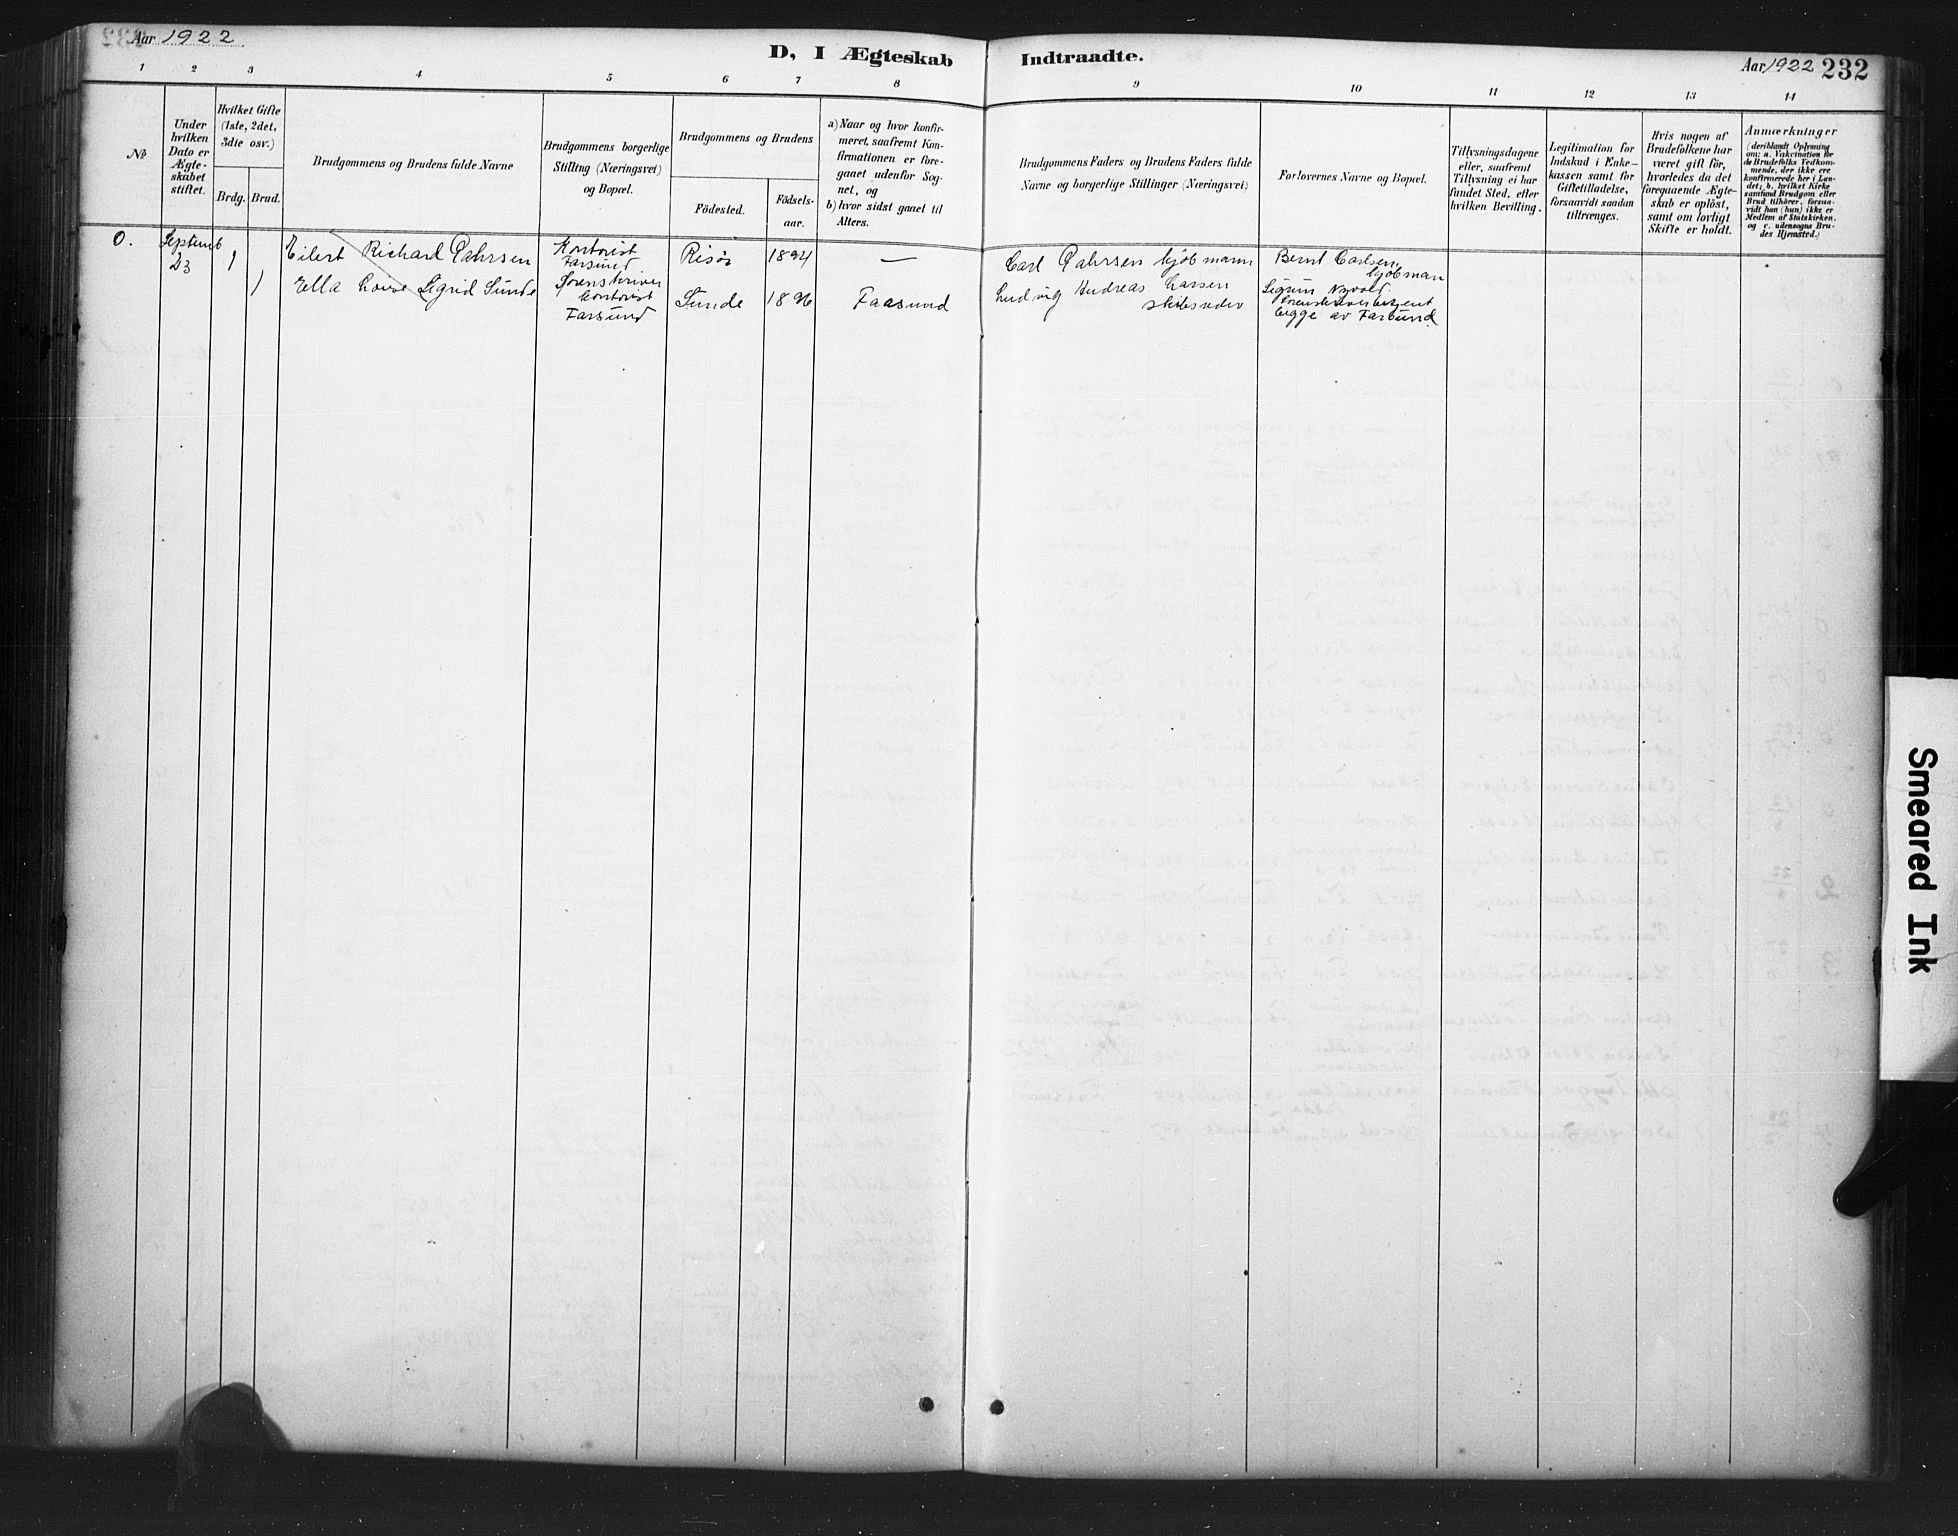 Aar 1922
D, I Ægteskab Indtraadte.
Aar 1922 232
1 2 3 4 5 6 7 8 9 10 11 12 13 14
No
Under
hvilken
Dato er
Ægte-
skabet
stiftet.
Hvilket Gifte
(1ste, 2det,
3die osv.)
Brdg. Brud.
Brudgommens og Brudens fulde Navne
Brudgommens borgerlige
Stilling (Næringsvei)
og Bopæl.
Brudgommens og Brudens
Födested.
Födsels-
aar.
a) Naar og hvor konfir-
meret, saafremt Kon-
firmationen er fore-
gaaet udenfor Sog-
net, og
b) hvor sidst gaaet til
Alters.
Brudgommens Faders og Brudens Faders fulde
Navne og borgerlige Stillinger (Næringsvei)
Forlovernes Navne og Bopæl.
Tillysningsdagene
eller, saafremt
Tillysning ei har
fundet Sted, efter
hvilken Bevilling.
Legitimation for
Indskud i Enke-
kassen samt for
Giftetilladelse,
forsaavidt saadan
tiltrænges.
Hvis nogen af
Brudefolkene har
været gift för,
hvorledes da det
foregaaende Ægte-
skab er oplöst,
samt om lovligt
Skifte er holdt.
Anmærkninger
(deriblandt Oplysning
om: a. Vakcination for
de Brudefolks Vedkom-
mende, der ikke ere
konfirmerede her i Lan-
det; b. hvilket Kirke
samfund Brudgom eller
Brud tilhörer, forsaa-
vidt han (hun) ikke er
Medlem af Statskirken,
og c. udensogns Bru-
des Hjemsted.)
0. Septemb 23 1 Eilert Richard Kontorist Farsund Risör 1894 — Carl kjöbmann Bernt Carlsen kjöbman
1 Ella Lovise Sigrid Sunde Sorenskriver kontorist Farsund Sunde 1896 Faasund Ludvig Andreas Larsen skibsreder Sigrun
begge av Farsund
Smeared Ink